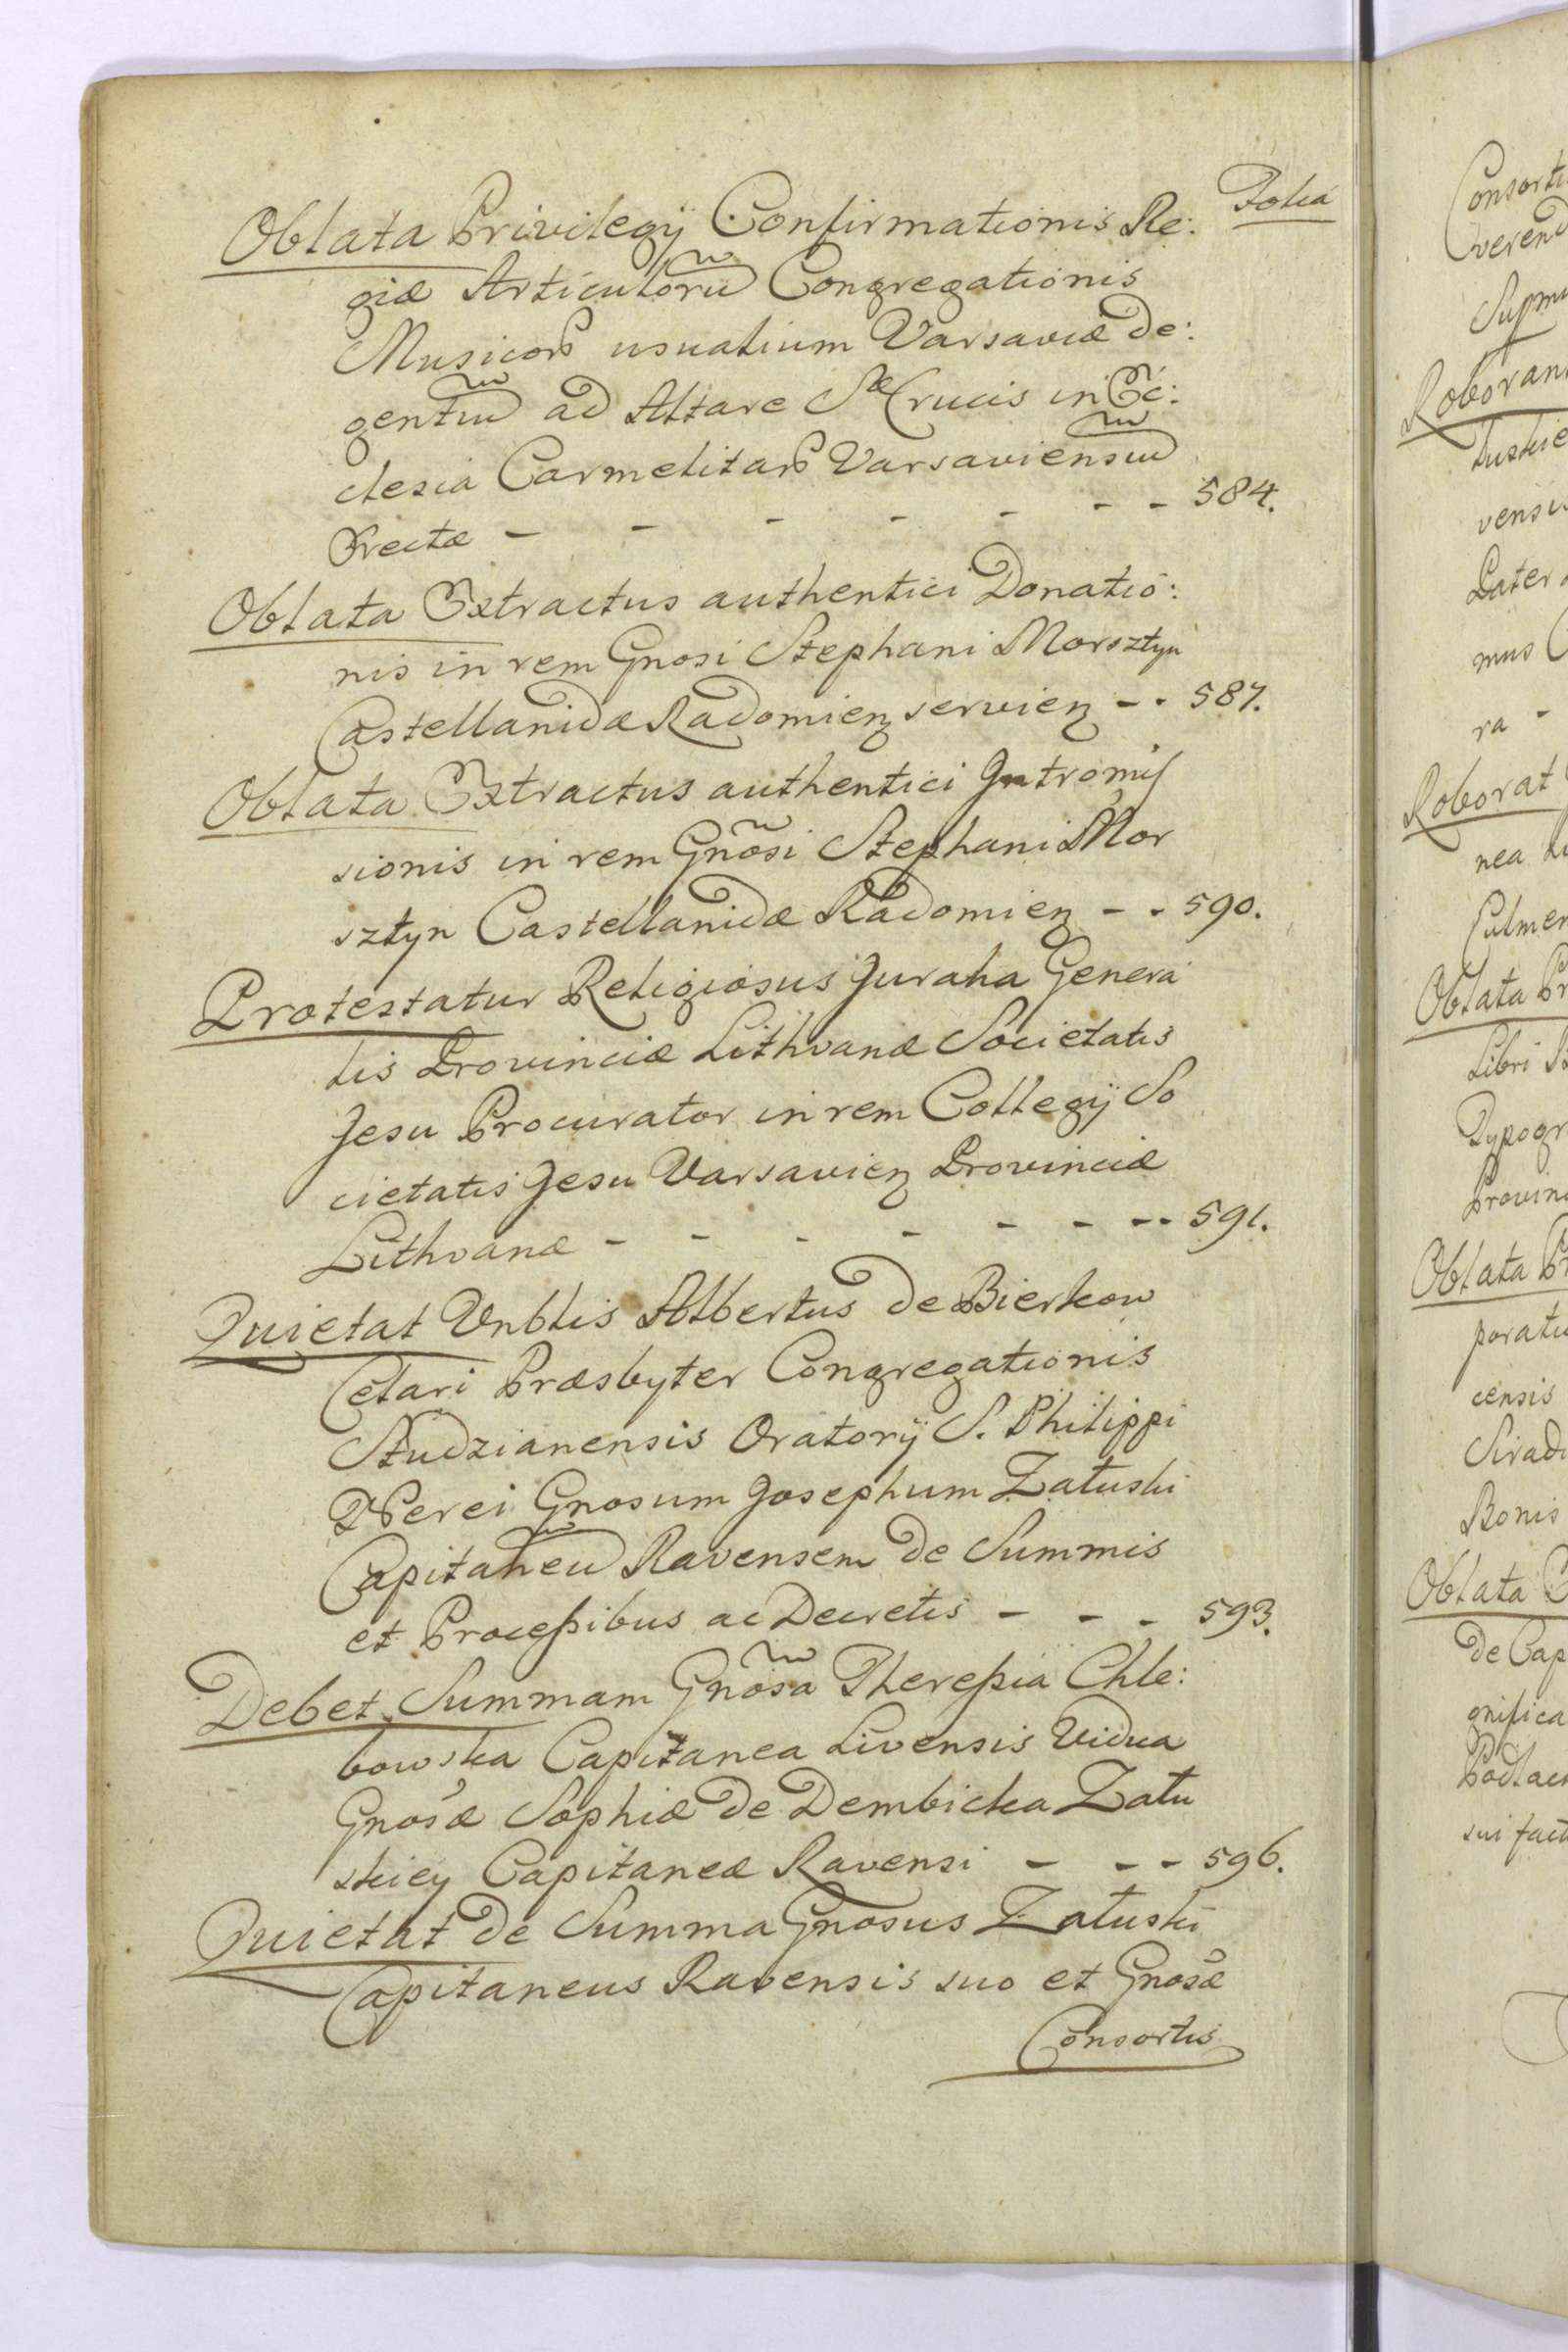 Folia
Oblata Privilegÿ Confirmationis Re:
giæ Articulorũ Congregationis
Musicor usualium Varsaviæ de:
gentiũ ad Altare Sæ Crucis in Ec:
clesia Carmelitar Varsaviensiũ
Erectæ - - - - - - - 584.
Oblata Extractus authentici Donatio:
nis in rem Gnosi Stephani Morsztyn
Castellanidæ Radomien servien - - 587.
Oblata Extractus authentici Intromis
sionis in rem Gñosi Stephani Mor
sztyn Castellanidæ Radomien - - 590.
Protestatur Religiosus Juraha Genera
lis Provinciæ Lithvanæ Societatis
Jesu Procurator in rem Collegÿ So
cietatis Jesu Varsavien Provinciæ
Lithvanæ - - - - - - - - 591.
Quietat Vnblis Albertus de Bierkow
Celari Præsbyter Congregationis
Studzianensis Oratorÿ S. Philippi
Nerei Gnosum Josephum Załuski
Capitaneũ Ravensem de Summis
et Processibus ac Decretis - - - 593.
Debet Summam Gñosa Theressia Chle:
bowska Capitanea Livensis Vidua
Gnosæ Sophiæ de Dembicka Zału
skiey Capitaneæ Ravensi - - - 596.
Quietat de Summa Gnosus Załuski
Capitaneus Ravensis suo et Gnosæ
Consortis
Consorti
veren
Supm
Roboran
łuskie
vensis
Pater
mus
ra -
Roborat
nea
Culmen
Oblata Pr
Libri
Typogr
Provin
Oblata Pr
poratu
censis
Siradi
Bonis
Oblata
de Cap
gnifica
Podlac
sui fact